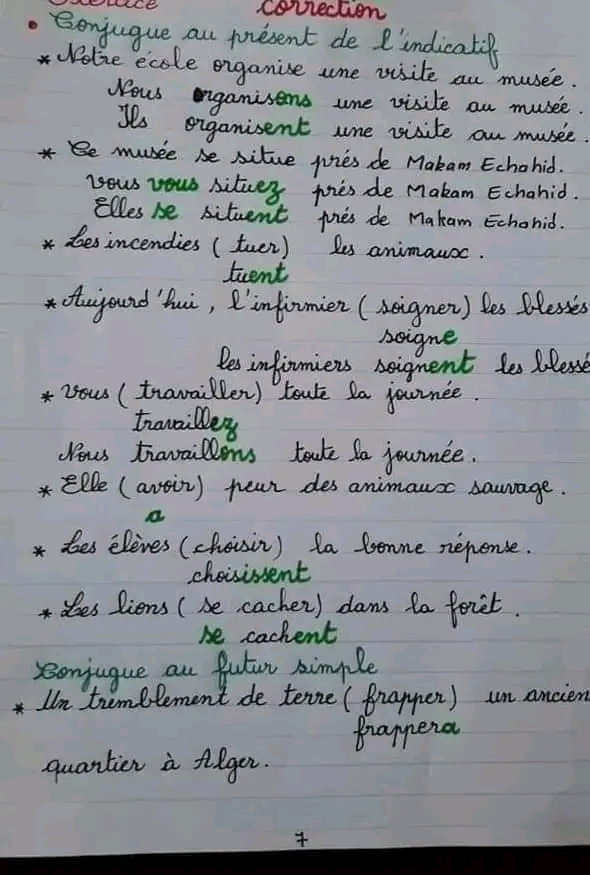 Exercice correction
• Conjugue au présent de l'indicatif
* Notre école organise une visite au musée.
Nous organisons une visite au musée.
Ils organisent une visite au musée.
* Ce musée se situe prés de Makam Echahid.
vous vous situez prés de Makam Echahid.
Elles se situent prés de Makam Echahid.
* Les incendies (tuer) les animaux.
tuent
* Aujourd'hui, l'infirmier (soigner) les blessés
soigne
les infirmiers soignent les blessé
* Vous (travailler) toute la journée.
travaillez
Nous travaillons toute la journée.
* Elle (avoir) peur des animaux sauvage.
a
* Les élèves (choisir) la bonne réponse.
choisissent
* Les lions (se cacher) dans la forêt.
se cachent
Conjugue au futur simple
* Un tremblement de terre (frapper) un ancien
frappera
quartier à Alger.
7